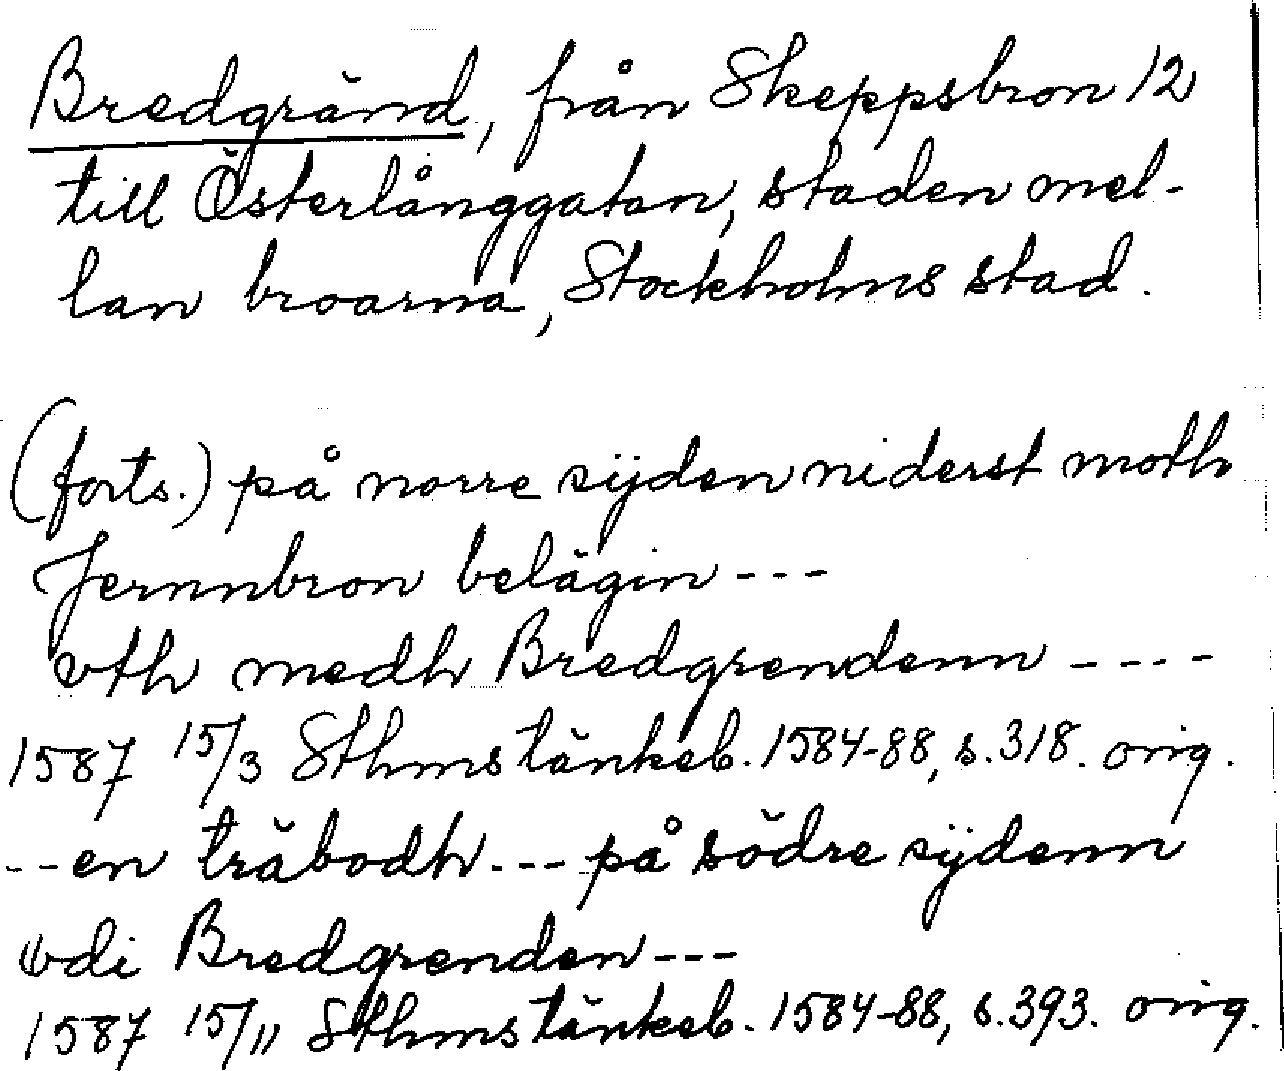 Bredgränd, från Skeppsbron 12
till Österlånggatan, staden mel-
lan broarna, Stockholms stad.
(forts.) på norre sijden niderst moth
Jernnbron belägin ---
vth medh Bredgrendenn ----
1587 15/3 Sthms tänkeb. 1584-88, s. 318. orig.
--en träbodh --- på södre sijdenn
vdi Bredgrenden ---
1587 15/11 Sthms tänkeb. 1584-88, s. 393. orig.